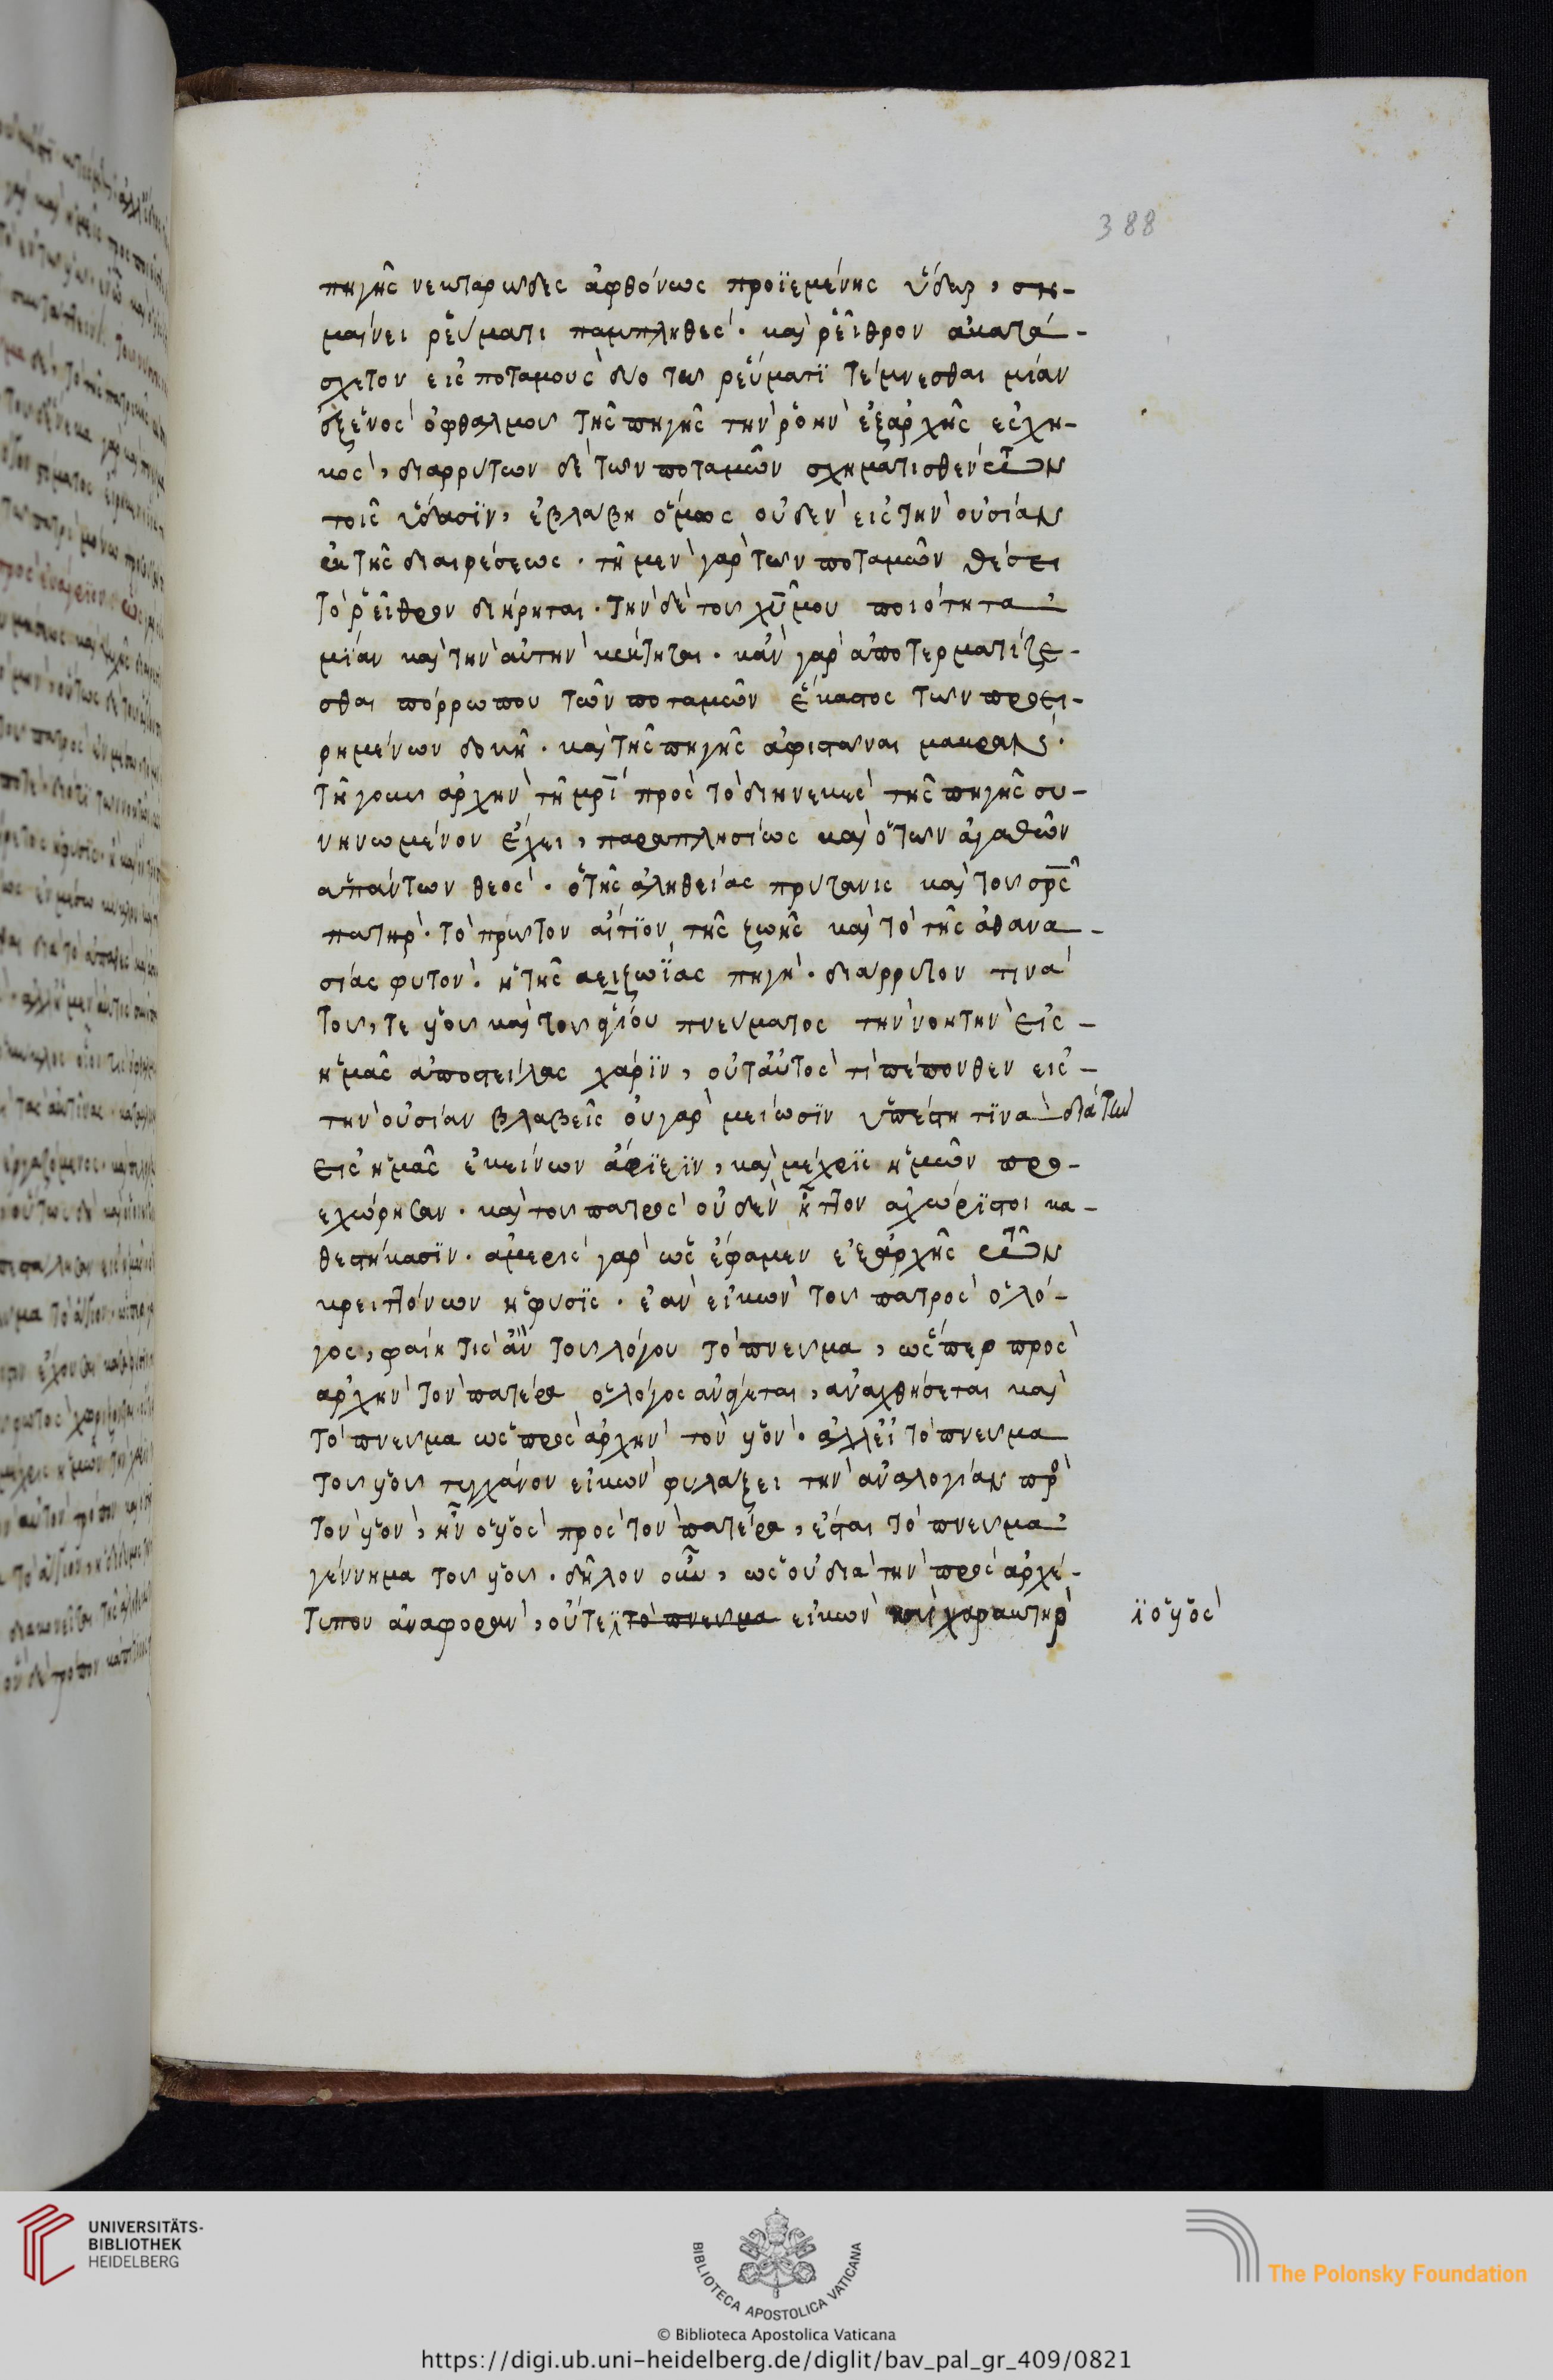 388
πηγῆς νεκταρῶδες ἀφθόνως προϊεμένης ὕδωρ, ση-
μαίνει ρεύματι παμπληθές. καὶ ρεῖθρον ἀκατά-
σχετον εἰς ποταμοὺς δύο τῶ ρεύματι τέμνεσθαι μίαν
ἐξ ἑνὸς ὀφθαλμοῦ τῆς πηγῆς τὴν ροὴν ἐξ ἀρχῆς ἐσχη-
κὸς, διαρρύτων δὲ τῶν ποταμῶν σχηματισθέν
τοῖς ὕδασιν, ἐβλάβη ὅμως οὐδὲν εἰς τὴν οὐσίαν
ἐκ τῆς διαιρέσεως. τῆ μὲν γὰρ τῶν ποταμῶν θέσει
τὸ ρεῖθρον διήρηται. τὴν δὲ τοῦ χυμοῦ ποιότητα
μίαν καὶ τὴν αὐτὴν κέκτηται. κἂν γὰρ ἀποτερματίζε-
σθαι πόρρω που τῶν ποταμῶν ἕκαστος τῶν προει-
ρημένων δοκῆ. καὶ τῆς πηγῆς ἀφιστᾶναι μακράν.
τὴν γοῦν ἀρχὴν τῆ μρὶ πρὸς τὸ διηνεκὲς τῆς πηγῆς συ-
νηνωμένον ἔχει, παραπλησίως καὶ ὁ τῶν ἀγαθῶν
ἁπάντων θεός. ὁ τῆς ἀληθείας πρύτανις καὶ τοῦ σρς
πατήρ. τὸ πρῶτον αἴτιον τῆς ζωῆς καὶ τὸ τῆς ἀθανα-
σίας φυτόν. ἡ τῆς ἀειζωΐας πηγή. διάρρυτον τινὰ
τοῦ, τε υἱοῦ καὶ τοῦ ἁγίου πνεύματος τὴν νοητὴν εἰς-
ἡμᾶς ἀποστείλας χάριν, οὔτ' αὐτὸς τι πέπονθεν εἰς-
τὴν οὐσίαν βλαβεὶς οὐ γὰρ μείωσιν ὑπέστη τινὰ διὰ τὴν
εἰς ἡμᾶς ἐκείνων ἄφιξιν, καὶ μέχρις ἡμῶν προ-
εχώρησαν. καὶ τοῦ πατρὸς οὐδὲν ἧττον ἀχώριστοι κα-
θεστήκασιν. ἀμερὴς γὰρ ὡς ἔφαμεν ἐξ ἀρχῆς τῶν
κρειττόνων ἡ φύσις. ἐὰν εἰκὼν τοῦ πατρὸς ὁ λό-
γος, φαίη τις ἂν τοῦ λόγου τὸ πνεῦμα, ὥσπερ πρὸς
ἀρχὴν τὸν πατέρα ὁ λόγος ἀνάγεται, ἀναχθήσεται καὶ
τὸ πνεῦμα ὡς πρὸς ἀρχὴν τὸν υἱόν. ἀλλ' εἰ τὸ πνεῦμα
τοῦ υἱοῦ τυγχάνον εἰκὼν φυλάξει τὴν ἀναλογίαν πρὸ
τὸν υἱὸν, ἣν ὁ υἱὸς πρὸς τὸν πατέρα, ἔσται τὸ πνεῦμα
γέννημα τοῦ υἱοῦ. δῆλον οὖν, ὡς οὐ διὰ τὴν πρὸς ἀρχέ-
τυπον ἀναφορὰν, οὔτε τὸ πνεῦμα εἰκὼν καὶ χαρακτὴρ
ὁ υἱὸς
UNIVERSITÄTS-
BIBLIOTHEK
HEIDELBERG
BIBLIOTECA APOSTOLICA VATICANA
The Polonsky Foundation
© Biblioteca Apostolica Vaticana
https://digi.ub.uni-heidelberg.de/diglit/bav_pal_gr_409/0821